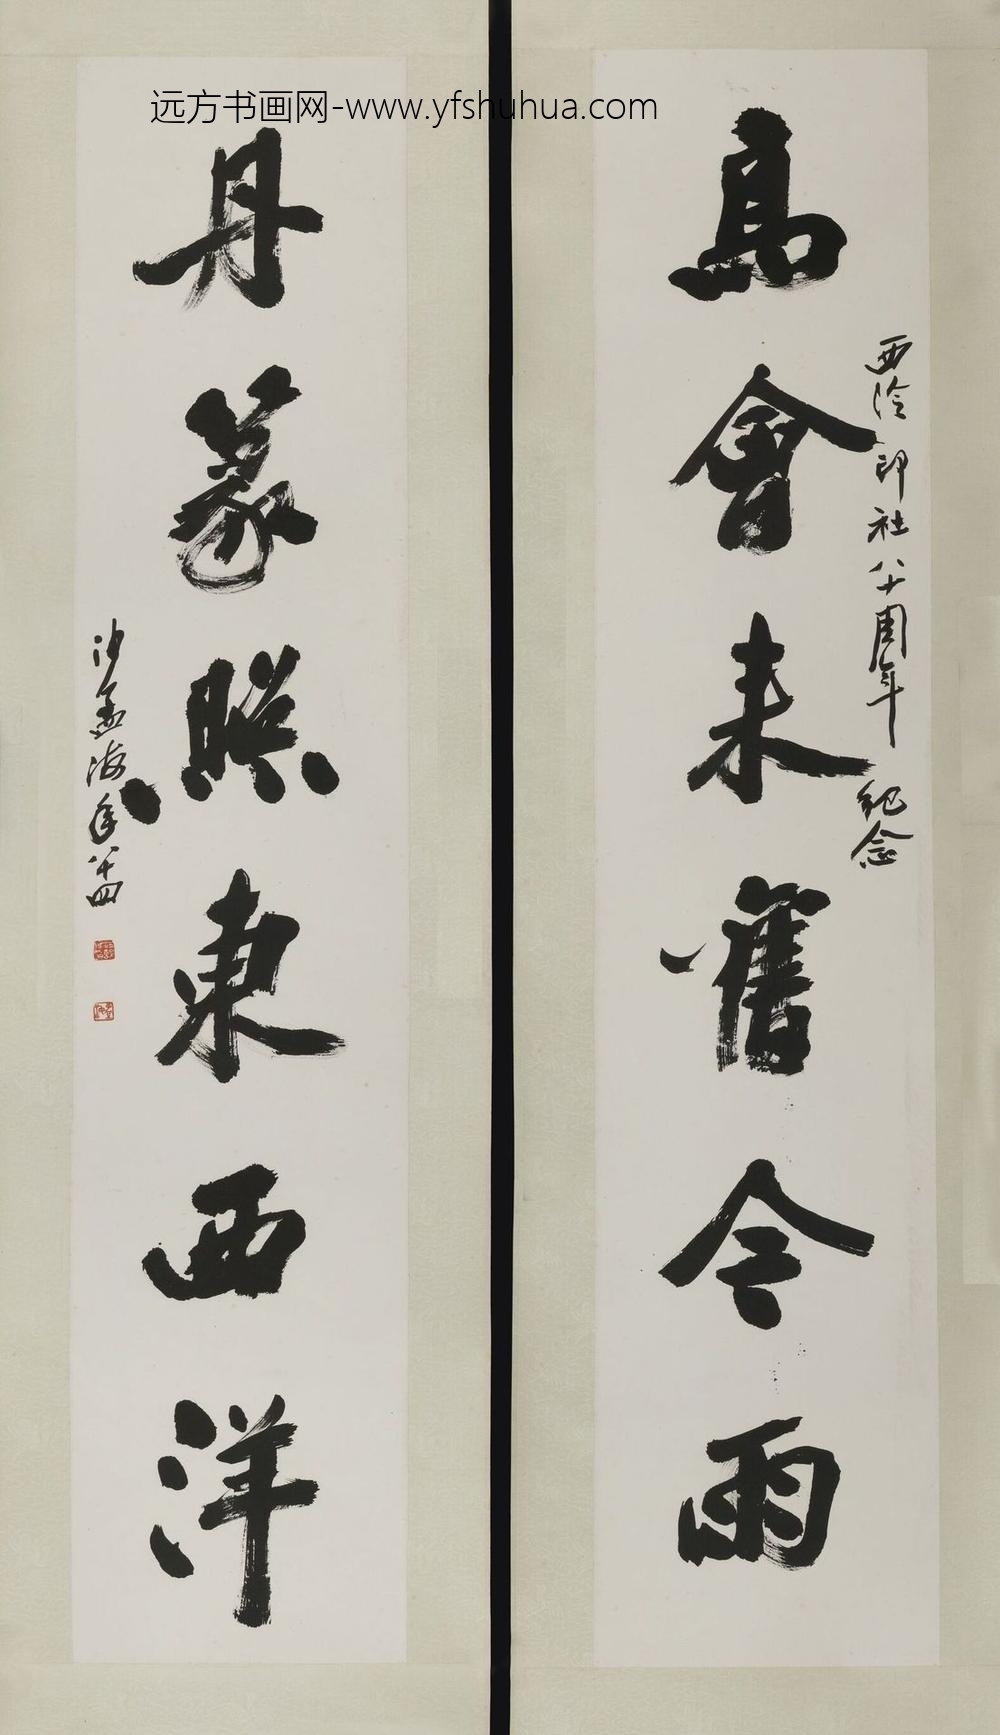 远方书画网-www.yfshuhua.com
高會来舊今雨
西泠印社八十周年紀念
丹篆照東西洋
沙孟海年八十四